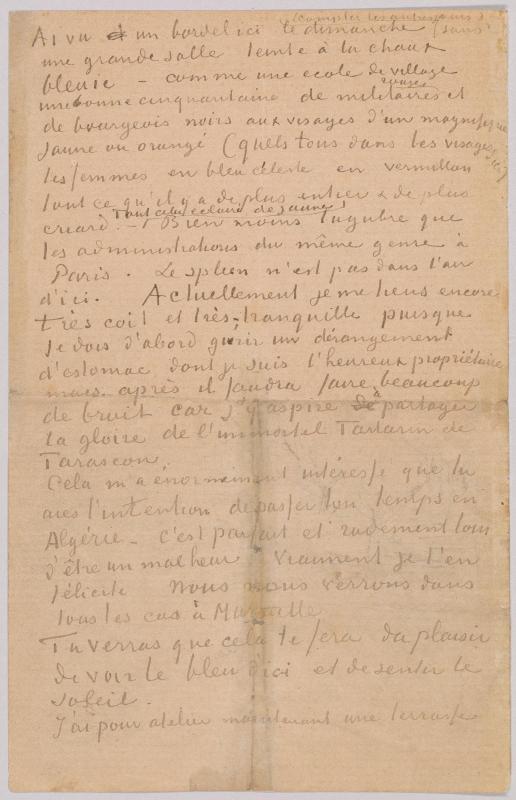 (compter les autres jours)
Ai vu un bordel ici le dimanche (sans
une grande salle teinte à la chaux
bleuie – comme une école de village
une bonne cinquantaine de militaires rouges et
de bourgeois noirs aux visages d'un magnifique
jaune ou orangé (quels tons dans les visages d'ici)
les femmes en bleu céleste en vermillon
tout ce qu'il y a de plus entier & de plus
criard. – Tout cela éclairé de jaune! Bien moins lugubre que
les administrations du même genre à
Paris. Le spleen n'est pas dans l'air
d'ici. Actuellement je me tiens encore
très coit et très tranquille puisque
je dois d'abord guérir un dérangement
d'estomac dont je suis l'heureux propriétaire
mais après il faudra faire beaucoup
de bruit car j'y aspire à partager
la gloire de l'immortel Tartarin de
Tarascon.
Cela m'a énormément intéressé que tu
aies l'intention de passer ton temps en
Algérie – c'est parfait et rudement loin
d'être un malheur Vraiment je t'en
félicite Nous nous verrons dans
tous les cas à Marseille
Tu verras que cela te fera du plaisir
de voir le bleu d'ici et de sentir le
soleil.
J'ai pour atelier maintenant une terrasse